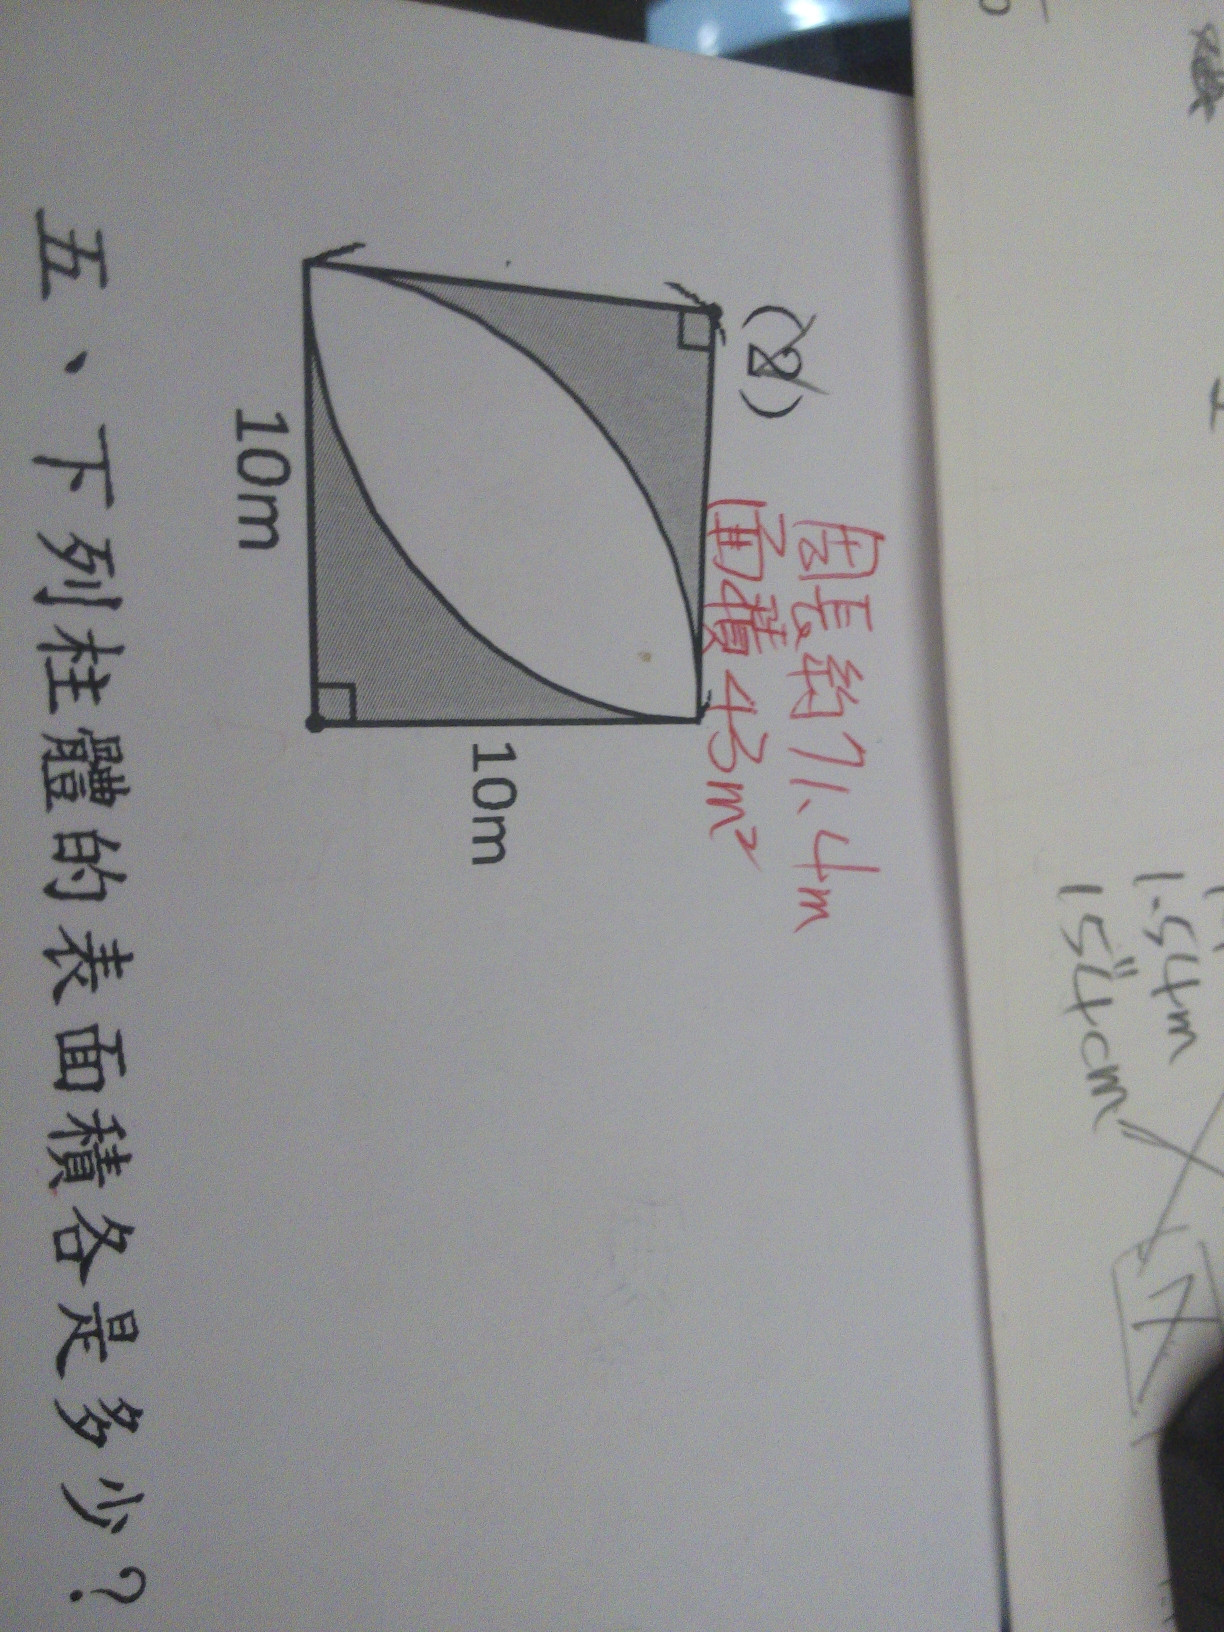 (2)
周長約71.4m
面積43m²
10m
10m
五、下列柱體的表面積各是多少？
1.54m
154cm